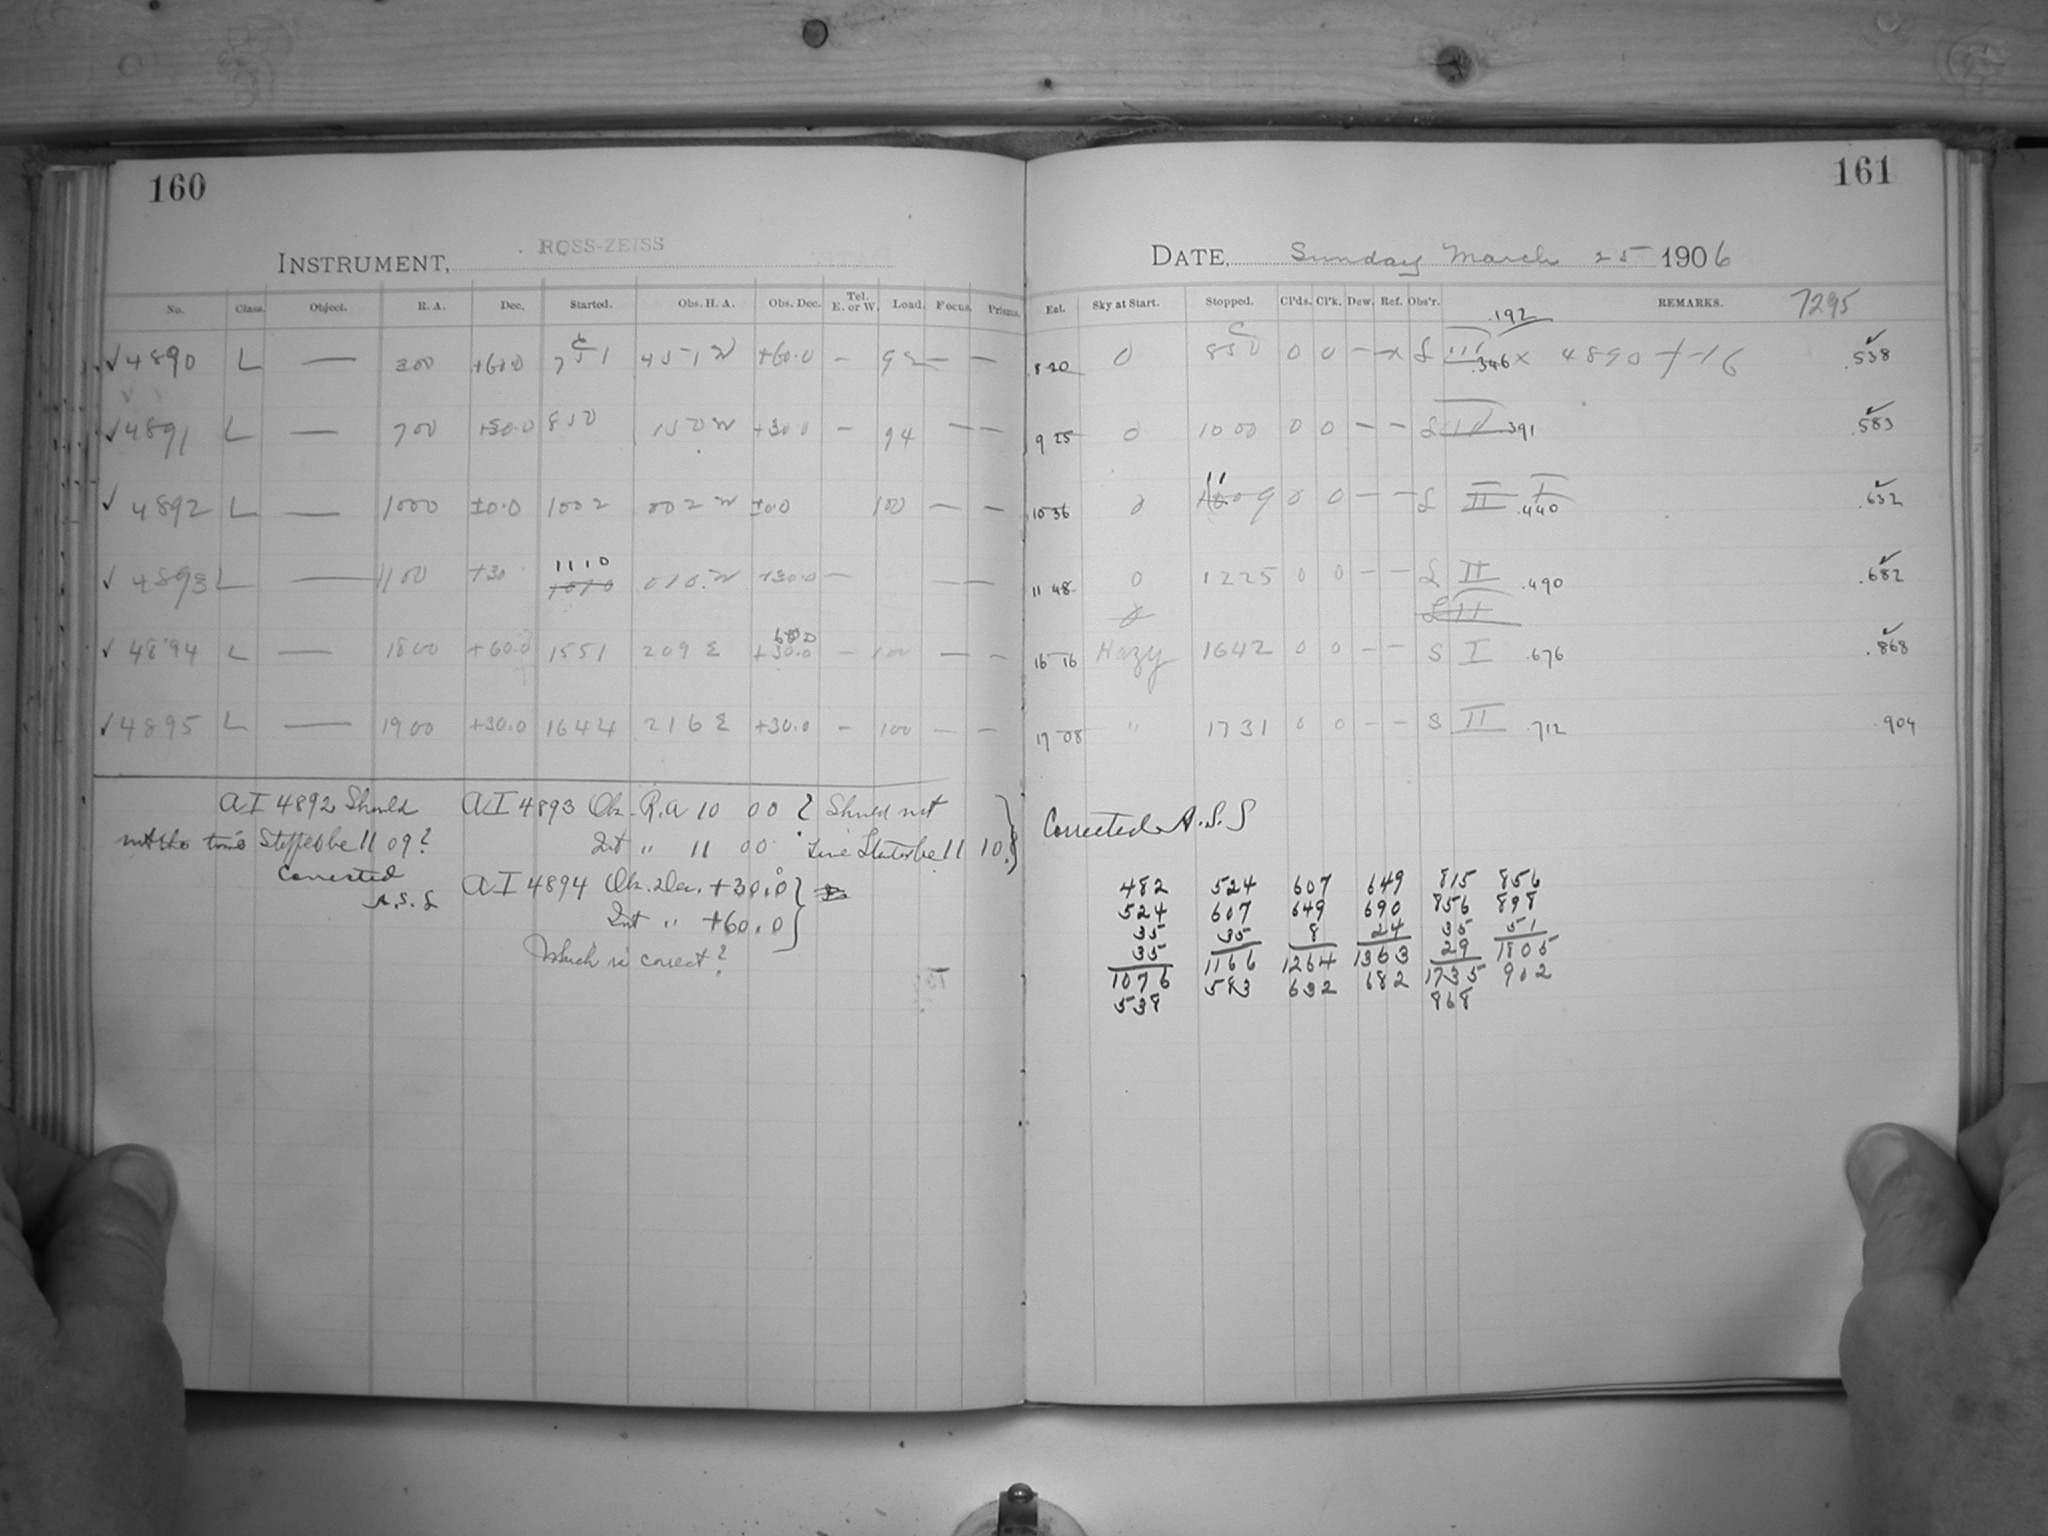 160
161
ROSS-ZEISS
INSTRUMENT,
DATE, Sunday March 25 1906
No. Class. Object. R. A. Dec. Started. Obs. H. A. Obs. Dec. Tel. E. or W. Load. Focus. Prisms.
Ent. Sky at Start. Stopped. Cl'ds. Cl'k. Dew. Ref. Obs'r. REMARKS. 7295
.192
✓4890 L — 300 +60.0 751 451 W +60.0 — 92 — —
8 20 0 850 0 0 — x L III .346 x 4890 +16 .538
✓4891 L — 700 +30.0 850 150 W +30.0 — 94 — —
9 25 0 1000 0 0 — — L II .391 .583
✓ 4892 L — 1000 ±0.0 1002 002 W ±0.0 100 — —
10 36 0 11 09 0 0 — — L II I .440 .632
1110
✓ 4893 L — 1100 +30 1010 010 W +30.0 — — —
11 48 0 1225 0 0 — — L II .490 .682
L II
600
✓ 4894 L — 1800 +60.0 1551 209 E +30.0 — 100 — —
16 16 Hazy 1642 0 0 — — S I .676 .868
✓4895 L — 1900 +30.0 1644 216 E +30.0 — 100 — —
17 08 " 1731 0 0 — — S II .712 .904
AI 4892 Should
not the time Stopped be 11 09?
Corrected
A.S.L
AI 4893 Ob. R.A 10 00 } Should not
Int " 11 00 Time Started be 11 10?
AI 4894 Ob. Dec. +30.0 }
Int " +60.0
Which is correct?
Corrected A.S.L
482 524 607 649 815 856
524 607 649 690 856 898
35 35 8 24 35 51
35 1166 1264 1363 29 1805
1076 583 632 682 1735 902
538 868